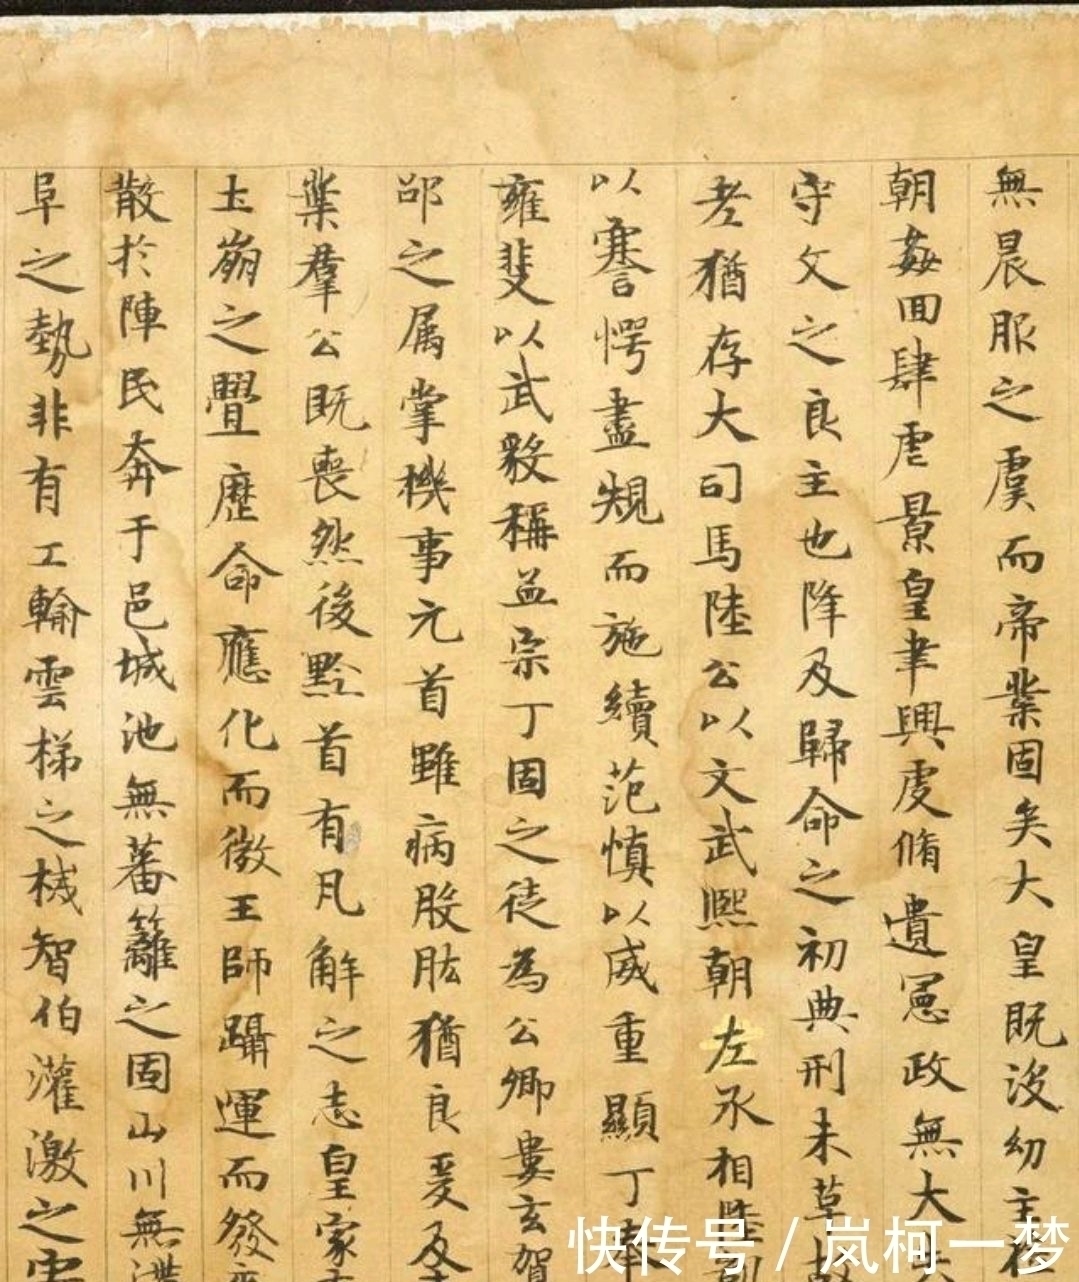 無晨服之虞而帝業固矣大皇既没幼主
朝姦回肆虐景皇聿興虔脩遺憲政無大
守文之良主也降及歸命之初典刑未
老猶存大司馬陸公以文武熙朝左丞相陸
以謇愕盡規而施績范慎以威重顯丁
雍斐以武毅稱孟宗丁固之徒為公卿婁玄賀
邵之属掌機事元首雖病股肱猶良爰及
業羣公既喪然後黔首有凡解之志皇家
土崩之舋歷命應化而微王師躡運而發
散於陣民奔于邑城池無蕃籬之固山川無
阜之勢非有工輸雲梯之械智伯灌激之
快传号 / 岚柯一梦